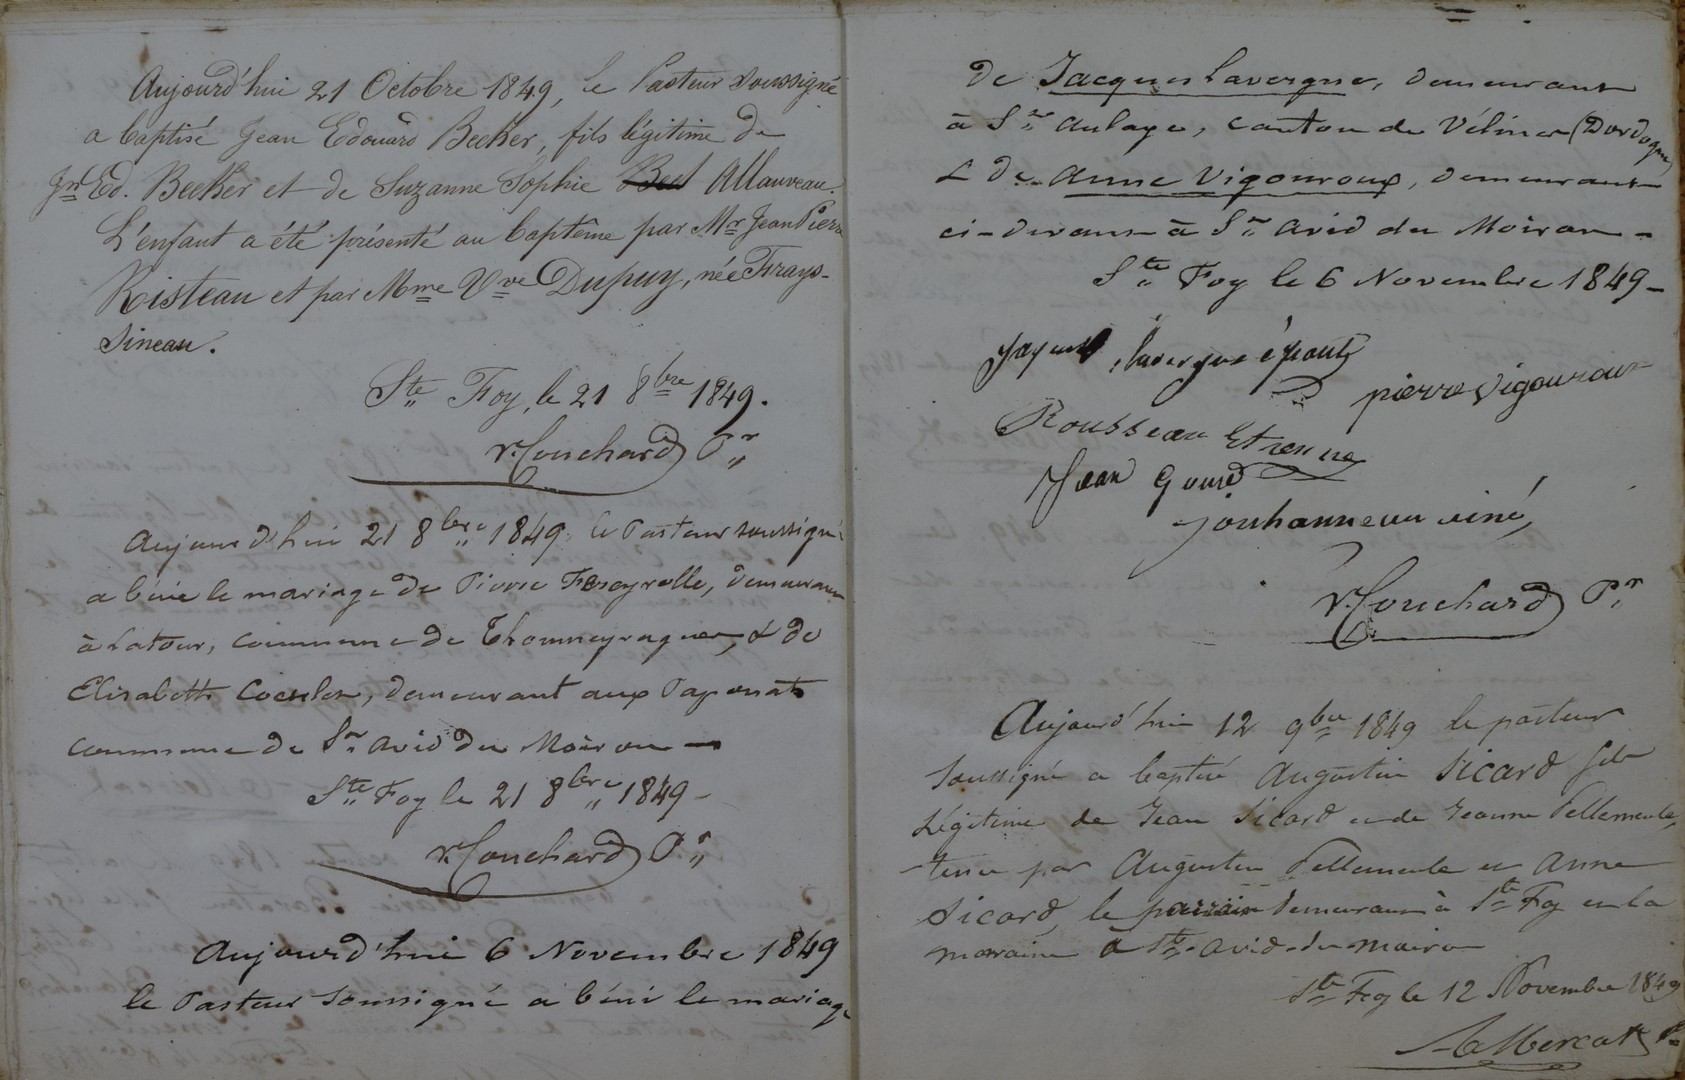 Aujourd'hui 21 Octobre 1849, le Pasteur soussigné
a baptisé Jean Edouard Becker, fils légitime de
Jn Ed. Becker et de Suzanne Sophie Allauveau.
L'enfant a été présenté au baptême par Mr Jean Pierre
Risteau et par Mme Vve Dupuy, née Frays-
sineau.
Ste Foy, le 21 8bre 1849.
V. Couchard Pr
Aujourd'hui 21 8bre 1849 le Pasteur soussigné
a béni le mariage de Pierre Feyrolle, demeurant
à Latour, commune de & de
Elisabeth demeurant aux
commune de St avid du Moiron —
Ste Foy le 21 8bre 1849 -
V. Couchard Pr
Aujourd'hui 6 Novembre 1849
le Pasteur soussigné a béni le mariage
de Jacques Lavergne, demeurant
à St aulaye, canton de Vélines (Dordogne)
& de Anne Vigouroux, demeurant
ci-devant à St avid du Moiron -
Ste Foy le 6 Novembre 1849 -
Jaques lavergne épouts
pierre Vigouroux
Rousseau Etienne
Jean Gourd
Jouhanneau ainé
V. Couchard Pr
Aujourd'hui 12 9bre 1849 le pasteur
soussigné a baptisé Augustin Sicard fils
légitime de Jean Sicard et de Jeanne Pellemeule,
tenu par Augustin Pellemeule et Anne
Sicard, le parrain demeurant à Ste Foy et la
marraine à St avid-du-moiron
Ste Foy le 12 Novembre 1849